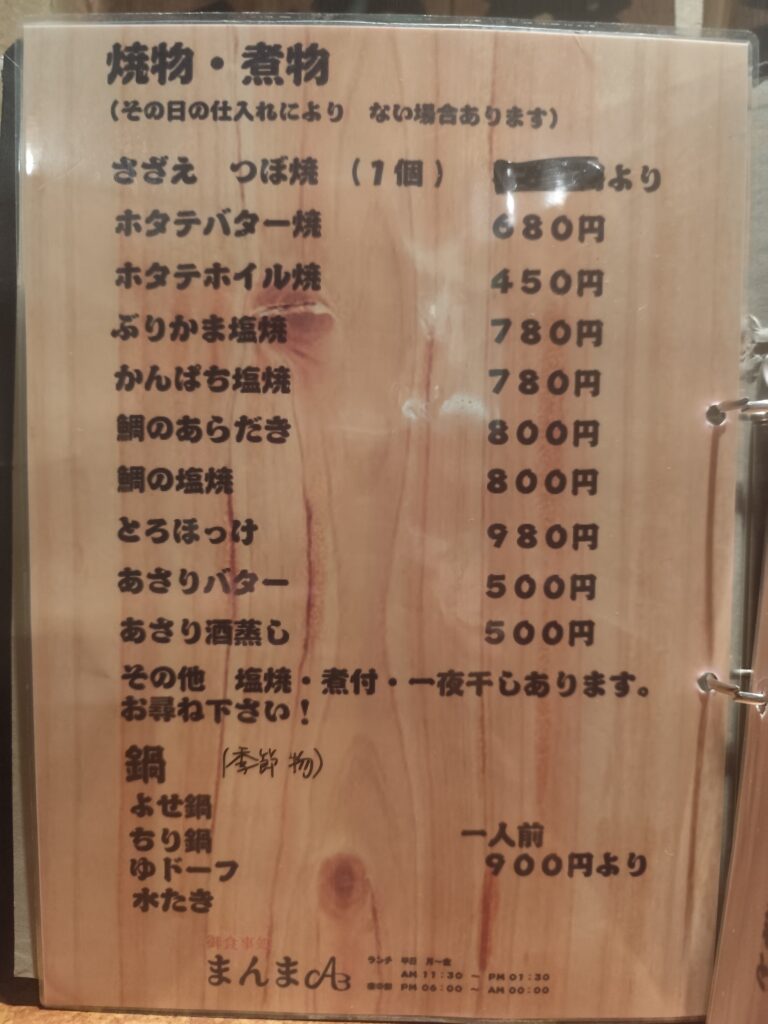 焼物・煮物
（その日の仕入れにより　ない場合あります）
さざえ　つぼ焼　（１個）　より
ホタテバター焼　６８０円
ホタテホイル焼　４５０円
ぶりかま塩焼　７８０円
かんぱち塩焼　７８０円
鯛のあらだき　８００円
鯛の塩焼　８００円
とろほっけ　９８０円
あさりバター　５００円
あさり酒蒸し　５００円
その他　塩焼・煮付・一夜干しあります。
お尋ね下さい！
鍋　（季節物）
よせ鍋
ちり鍋　一人前
ゆドーフ　９００円より
水たき
まんま
ランチ　平日　月〜金
AM 11:30 〜 PM 01:30
PM 06:00 〜 AM 00:00